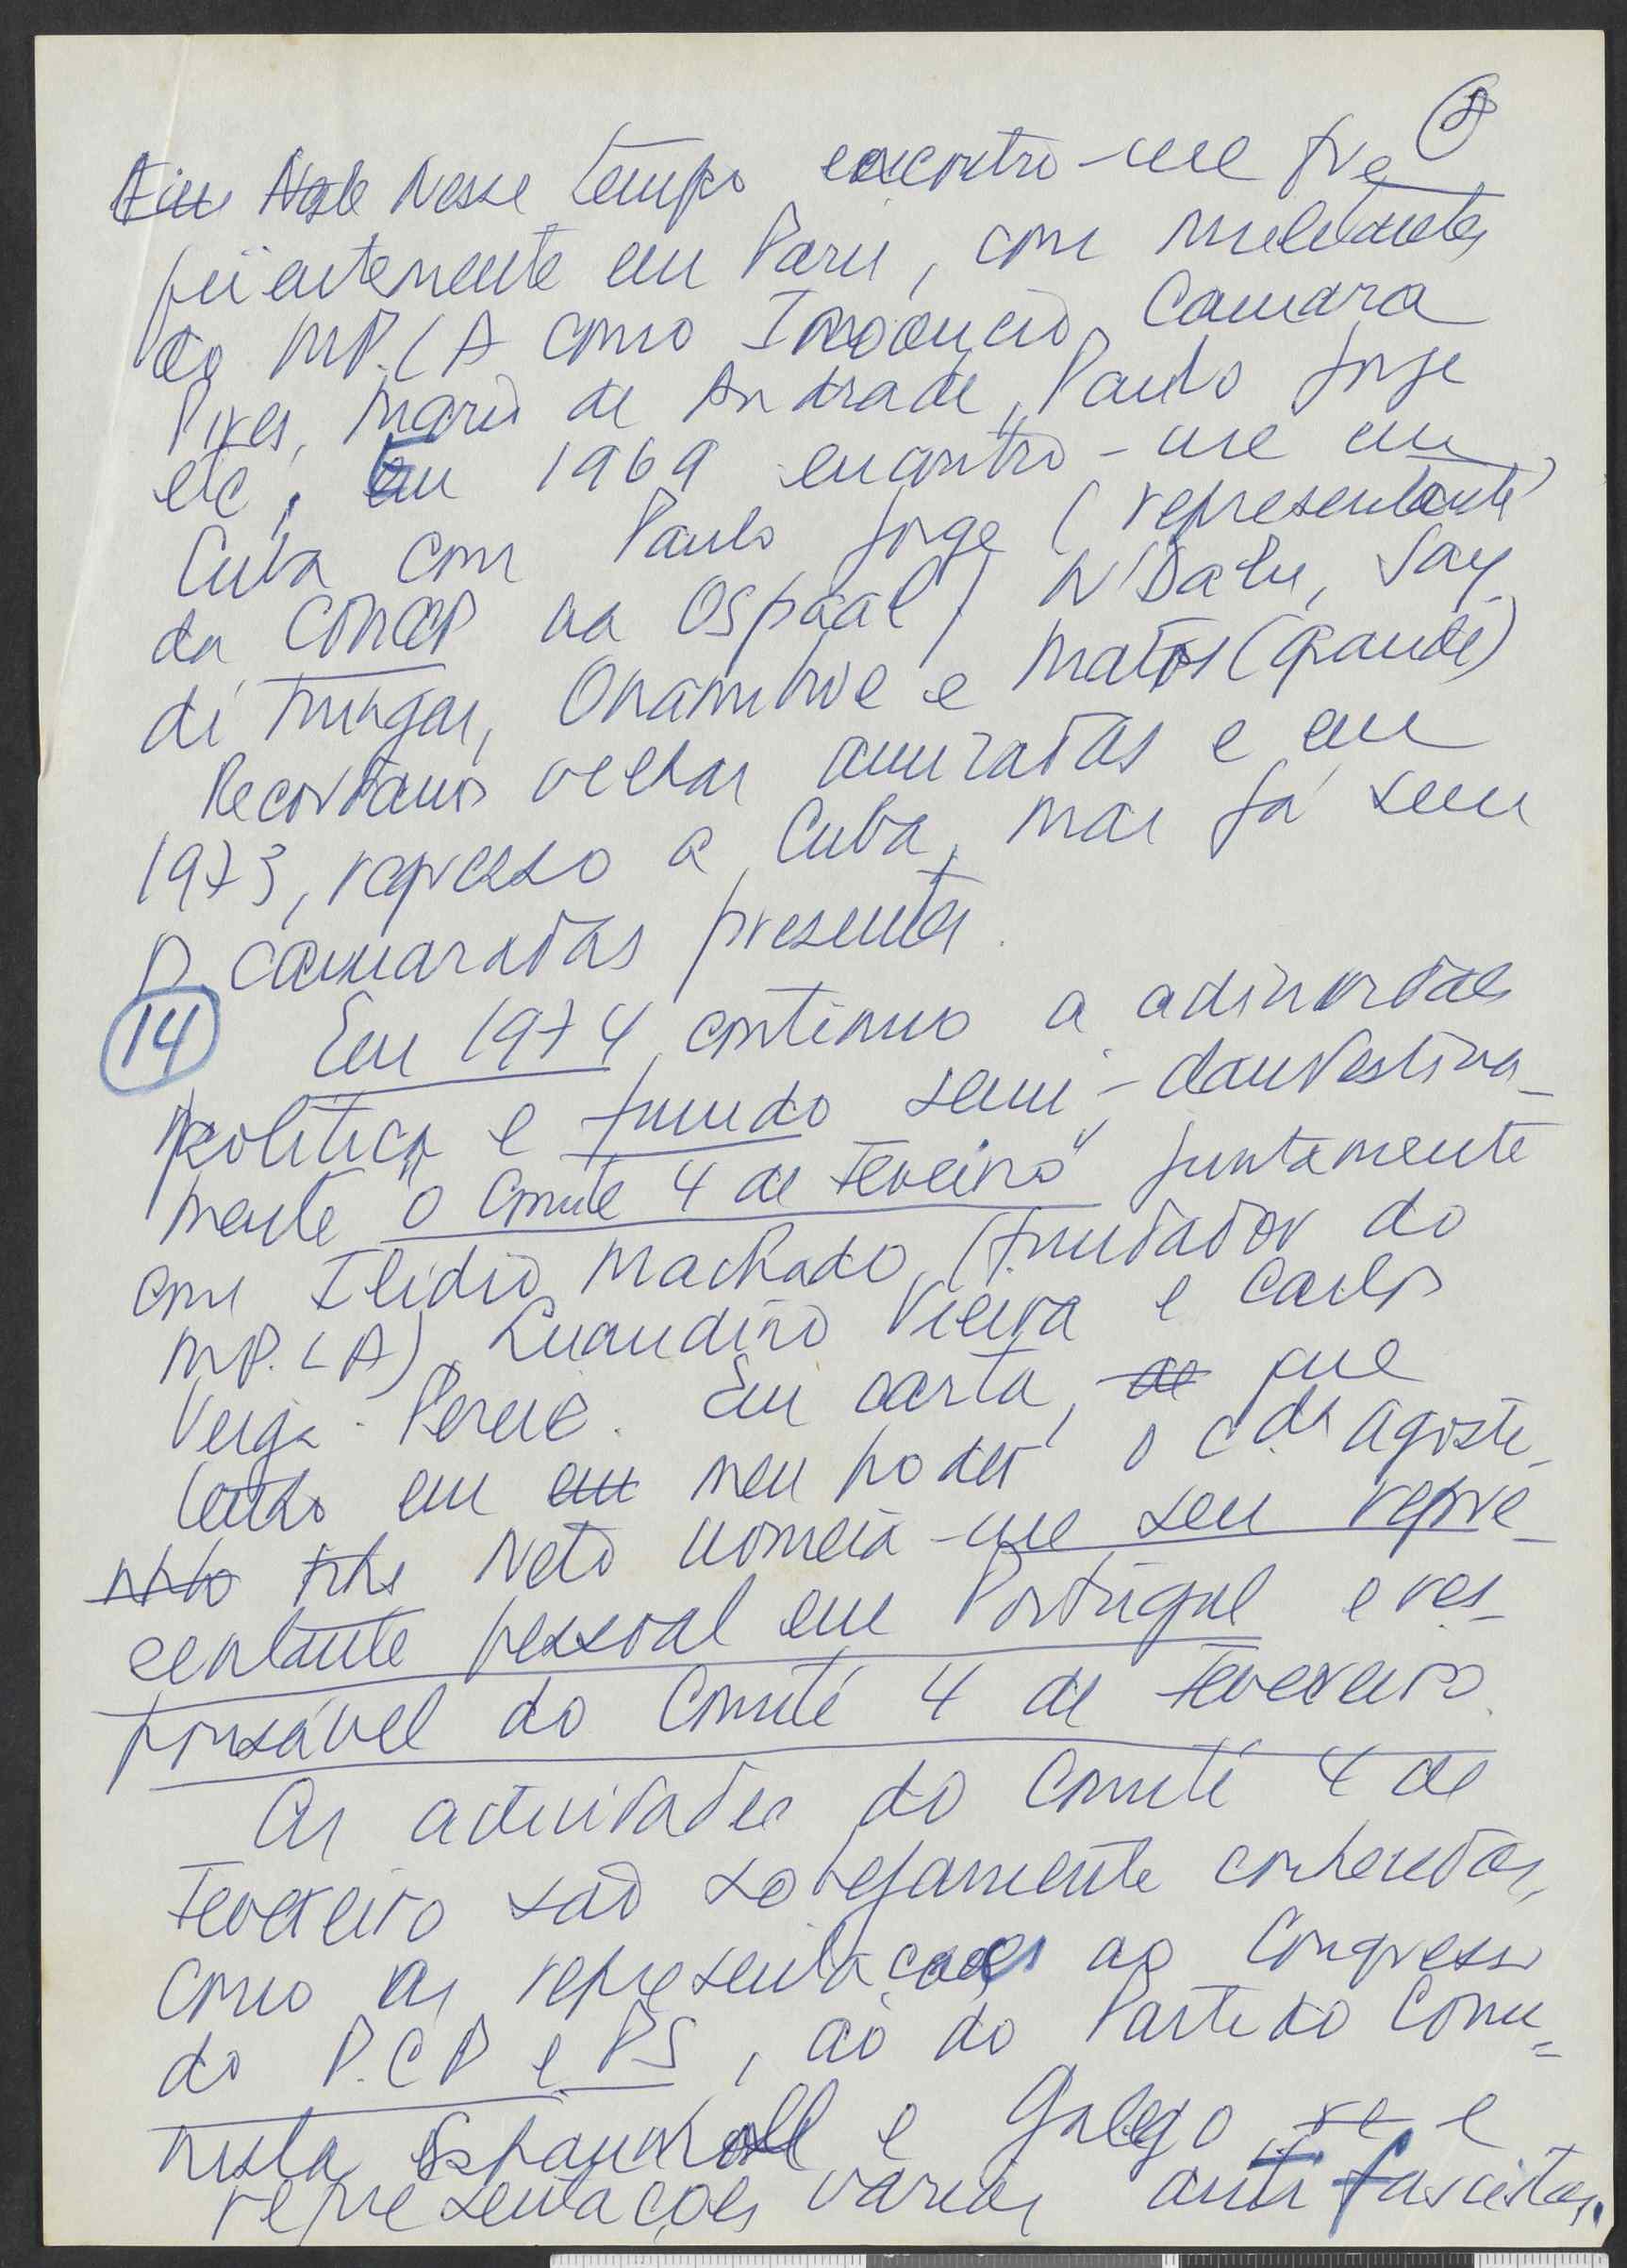 8
Nesse tempo encontro-me fre
qüentemente em Paris, com militantes
do M.P.L.A como Inocêncio, Camara
Pires, Mario de Andrade, Paulo Jorge
etc. Em 1969 encontro-me em
Cuba com Paulo Jorge (representante
da CONCP na Ospaal) N'Dalu, Say
di Mingas, Onambwe e Matos (grande)
Recordamos velhas amizadas e em
1973, regresso a Cuba, mas já sem
os camaradas presentes.
14 Em 1974 continuo a
politica e fundo semi-clandestina-
mente "o Comité 4 de Fevereiro" juntamente
com Ilidio Machado, (fundador do
M.P.L.A) Luandino Vieira e Carlos
Veiga Pereira. Em carta, de que
tenho em em meu poder o c.da Agosti-
nho Neto nomeia-me seu repre-
sentante pessoal em Portugal e res-
ponsável do Comité 4 de Fevereiro.
As actividades do Comité 4 de
Fevereiro são sobejamente conhecidas,
como as representações ao Congresso
do P.C.P e PS, ao do Partido Comu=
nista Espanholl e Galego re e
representações várias anti fascistas.